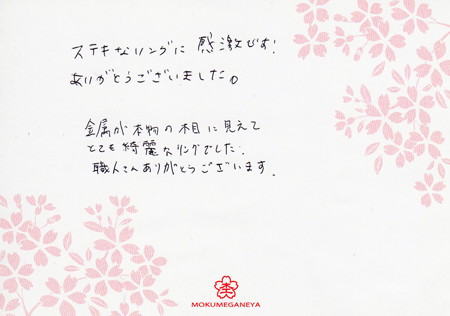 ステキなリングに 感激です!
ありがとうございました。
金属が本物の木目に見えて
とても綺麗なリングでした.
職人さんありがとうございます.
MOKUMEGANEYA